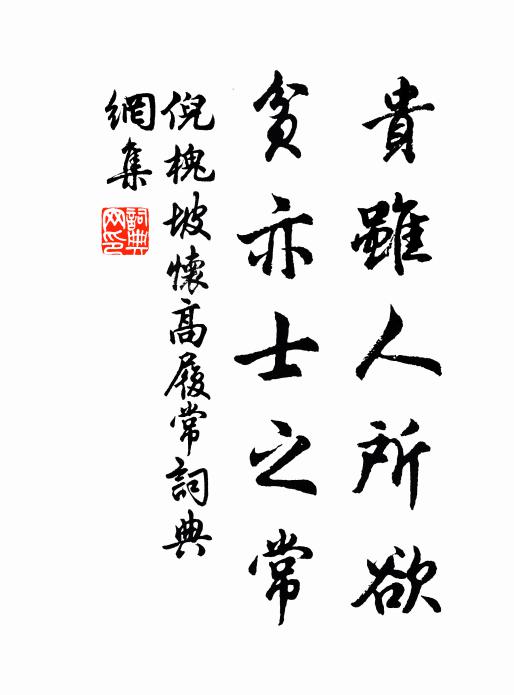 貴雖人所欲
貧亦士之常
倪槐坡懷高履常詞典
網集
詞典
网印